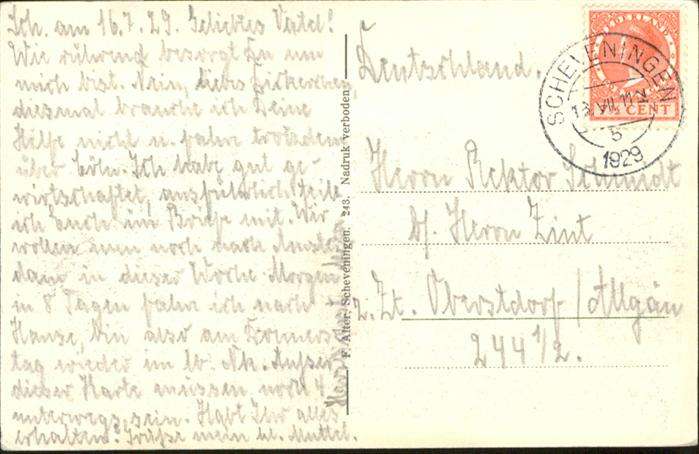 Sch. am 16.7.29. Geliebtes Vatel!
Wie rührend besorgt Du um
mich bist. Nein, liebes
diesmal brauche ich Deine
Hilfe nicht u. fahre trotzdem
über Köln. Ich habe gut ge-
wirtschaftet, ausführlich teile
ich Euch im Briefe mit. Wir
wollen nun noch nach Amster-
dam in dieser Woche. Morgen
in 8 Tagen fahre ich nach
Hause, bin also am Donners-
tag wieder im lb. Nk. Außer
dieser Karte müssen noch 4
unterwegs sein. Habt Ihr alles
erhalten? Grüße mein lb. Muttel.
F. Alter, Scheveningen. 243. Nadruk verboden
SCHEVENINGEN
VII
5
1929
NEDERLAND
7½ CENT
Deutschland.
Herrn Rektor Schmidt
bei Herrn Zint
z. Zt. Oberstdorf / Allgäu
244 1/2.